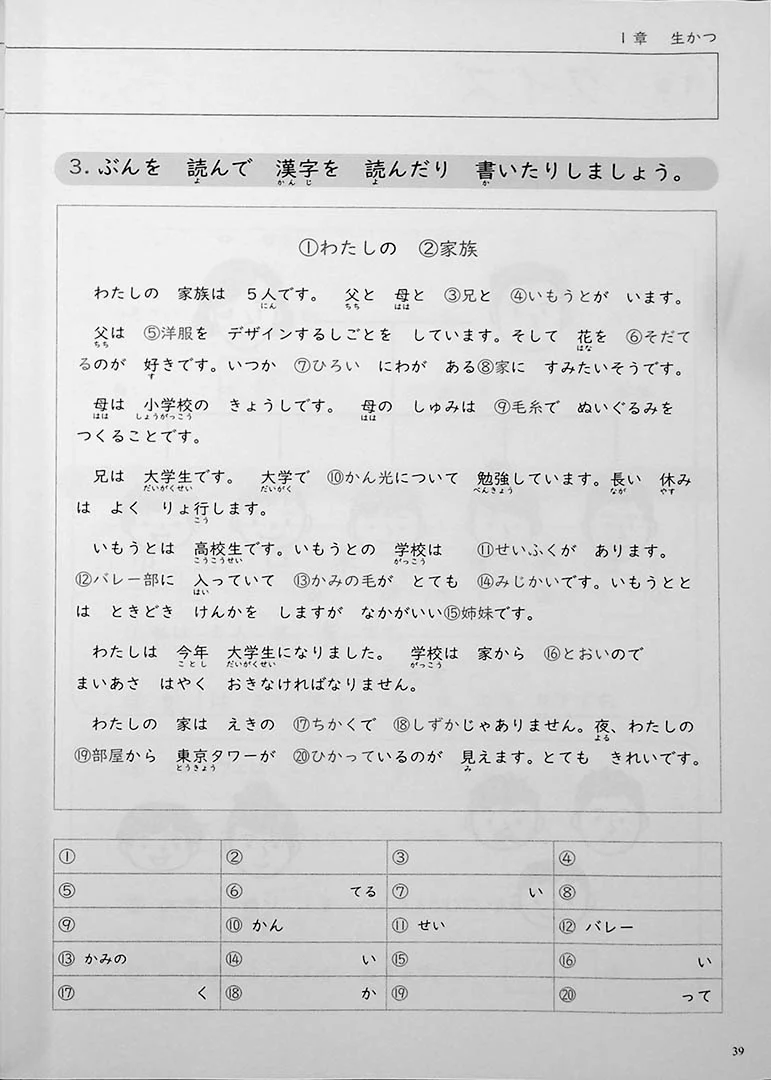 1章　生かつ
3. ぶんを　読んで　漢字を　読んだり　書いたりしましょう。
よ　かんじ　よ　か
①わたしの　②家族
わたしの　家族は　５人です。　父と　母と　③兄と　④いもうとが　います。
にん　ちち　はは
父は　⑤洋服を　デザインするしごとを　しています。そして　花を　⑥そだて
ちち　はな
るのが　好きです。いつか　⑦ひろい　にわが　ある⑧家に　すみたいそうです。
す
母は　小学校の　きょうしです。　母の　しゅみは　⑨毛糸で　ぬいぐるみを
はは　しょうがっこう　はは
つくることです。
兄は　大学生です。　大学で　⑩かん光について　勉強しています。長い　休み
だいがくせい　だいがく　べんきょう　なが　やす
は　よく　りょ行します。
こう
いもうとは　高校生です。いもうとの　学校は　⑪せいふくが　あります。
こうこうせい　がっこう
⑫バレー部に　入っていて　⑬かみの毛が　とても　⑭みじかいです。いもうとと
はい
は　ときどき　けんかを　しますが　なかがいい⑮姉妹です。
わたしは　今年　大学生になりました。　学校は　家から　⑯とおいので
ことし　だいがくせい　がっこう
まいあさ　はやく　おきなければなりません。
わたしの　家は　えきの　⑰ちかくで　⑱しずかじゃありません。夜、わたしの
よる
⑲部屋から　東京タワーが　⑳ひかっているのが　見えます。とても　きれいです。
とうきょう　み
①　②　③　④
⑤　⑥　てる　⑦　い　⑧
⑨　⑩ かん　⑪ せい　⑫ バレー
⑬ かみの　⑭　い　⑮　⑯　い
⑰　く　⑱　か　⑲　⑳　って
39